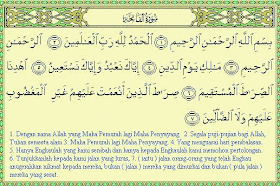 سُورَةُ الفَاتِحَةِ
بِسْمِ ٱللَّهِ ٱلرَّحْمَـٰنِ ٱلرَّحِيمِ ١ ٱلْحَمْدُ لِلَّهِ رَبِّ ٱلْعَـٰلَمِينَ ٢ ٱلرَّحْمَـٰنِ
ٱلرَّحِيمِ ٣ مَـٰلِكِ يَوْمِ ٱلدِّينِ ٤ إِيَّاكَ نَعْبُدُ وَإِيَّاكَ نَسْتَعِينُ ٥ ٱهْدِنَا
ٱلصِّرَٰطَ ٱلْمُسْتَقِيمَ ٦ صِرَٰطَ ٱلَّذِينَ أَنْعَمْتَ عَلَيْهِمْ غَيْرِ ٱلْمَغْضُوبِ
عَلَيْهِمْ وَلَا ٱلضَّآلِّينَ ٧
1. Dengan nama Allah yang Maha Pemurah lagi Maha Penyayang. 2. Segala puji-pujian bagi Allah,
Tuhan semesta alam 3. Maha Pemurah, lagi Maha Penyayang. 4. Yang menguasai hari pembalasan.
5. Hanya Engkaulah yang kami sembah dan hanya kepada Engkaulah kami memohon pertolongan.
6. Tunjukkanlah kepada kami jalan yang lurus, 7. ( iaitu ) jalan orang-orang yang telah Engkau
anugerahkan nikmat kepada mereka, bukan ( jalan ) mereka yang dimurkai dan bukan ( pula jalan )
mereka yang sesat.